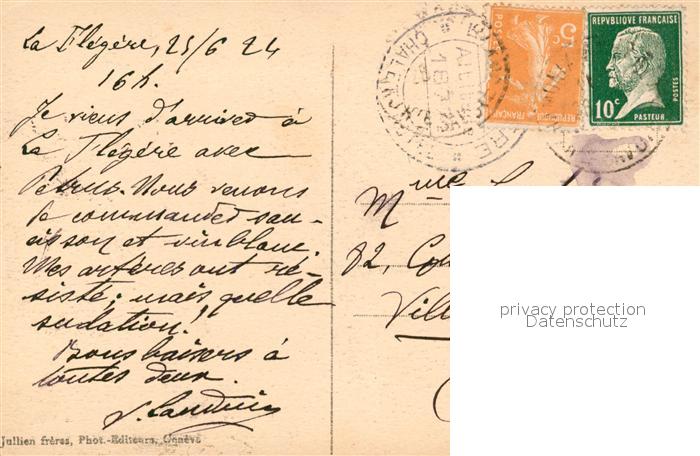 La Flégère, 25/6 24
16 h.
Je viens d'arriver à
La Flégère avec
Petrus. Nous venons
de commander sau-
cisson et vin blanc.
Mes artères ont ré-
sisté; mais quelle
sudation!
Bons baisers à
toutes deux.
Jullien frères, Phot.-Editeurs, Genève
5c
POSTES
REPUBLIQUE FRANÇAISE
REPUBLIQUE FRANÇAISE
10c
POSTES
PASTEUR
Mme
82, Cou
Vill
privacy protection
Datenschutz